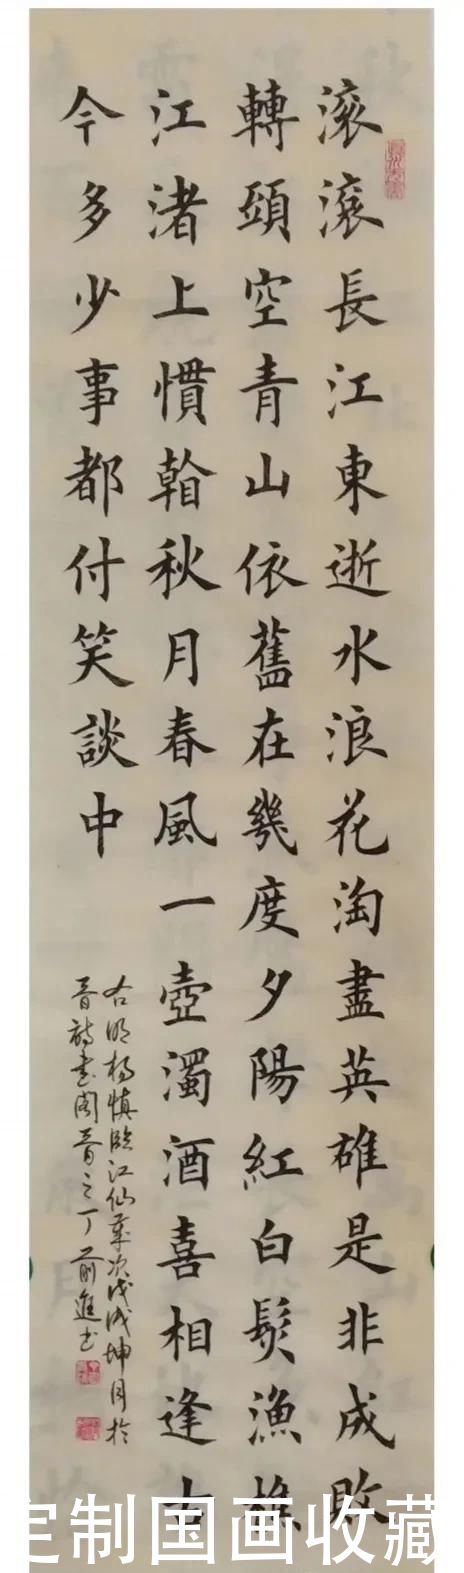 滚滚長江東逝水浪花淘盡英雄是非成敗
轉頭空青山依舊在幾度夕陽紅白髮漁樵
江渚上慣秋月春風一壺濁酒喜相逢古
今多少事都付笑談中
右明杨慎临江仙歲次戊戌坤月於
晋詩書閣晋之丁前進书
定制国画收藏